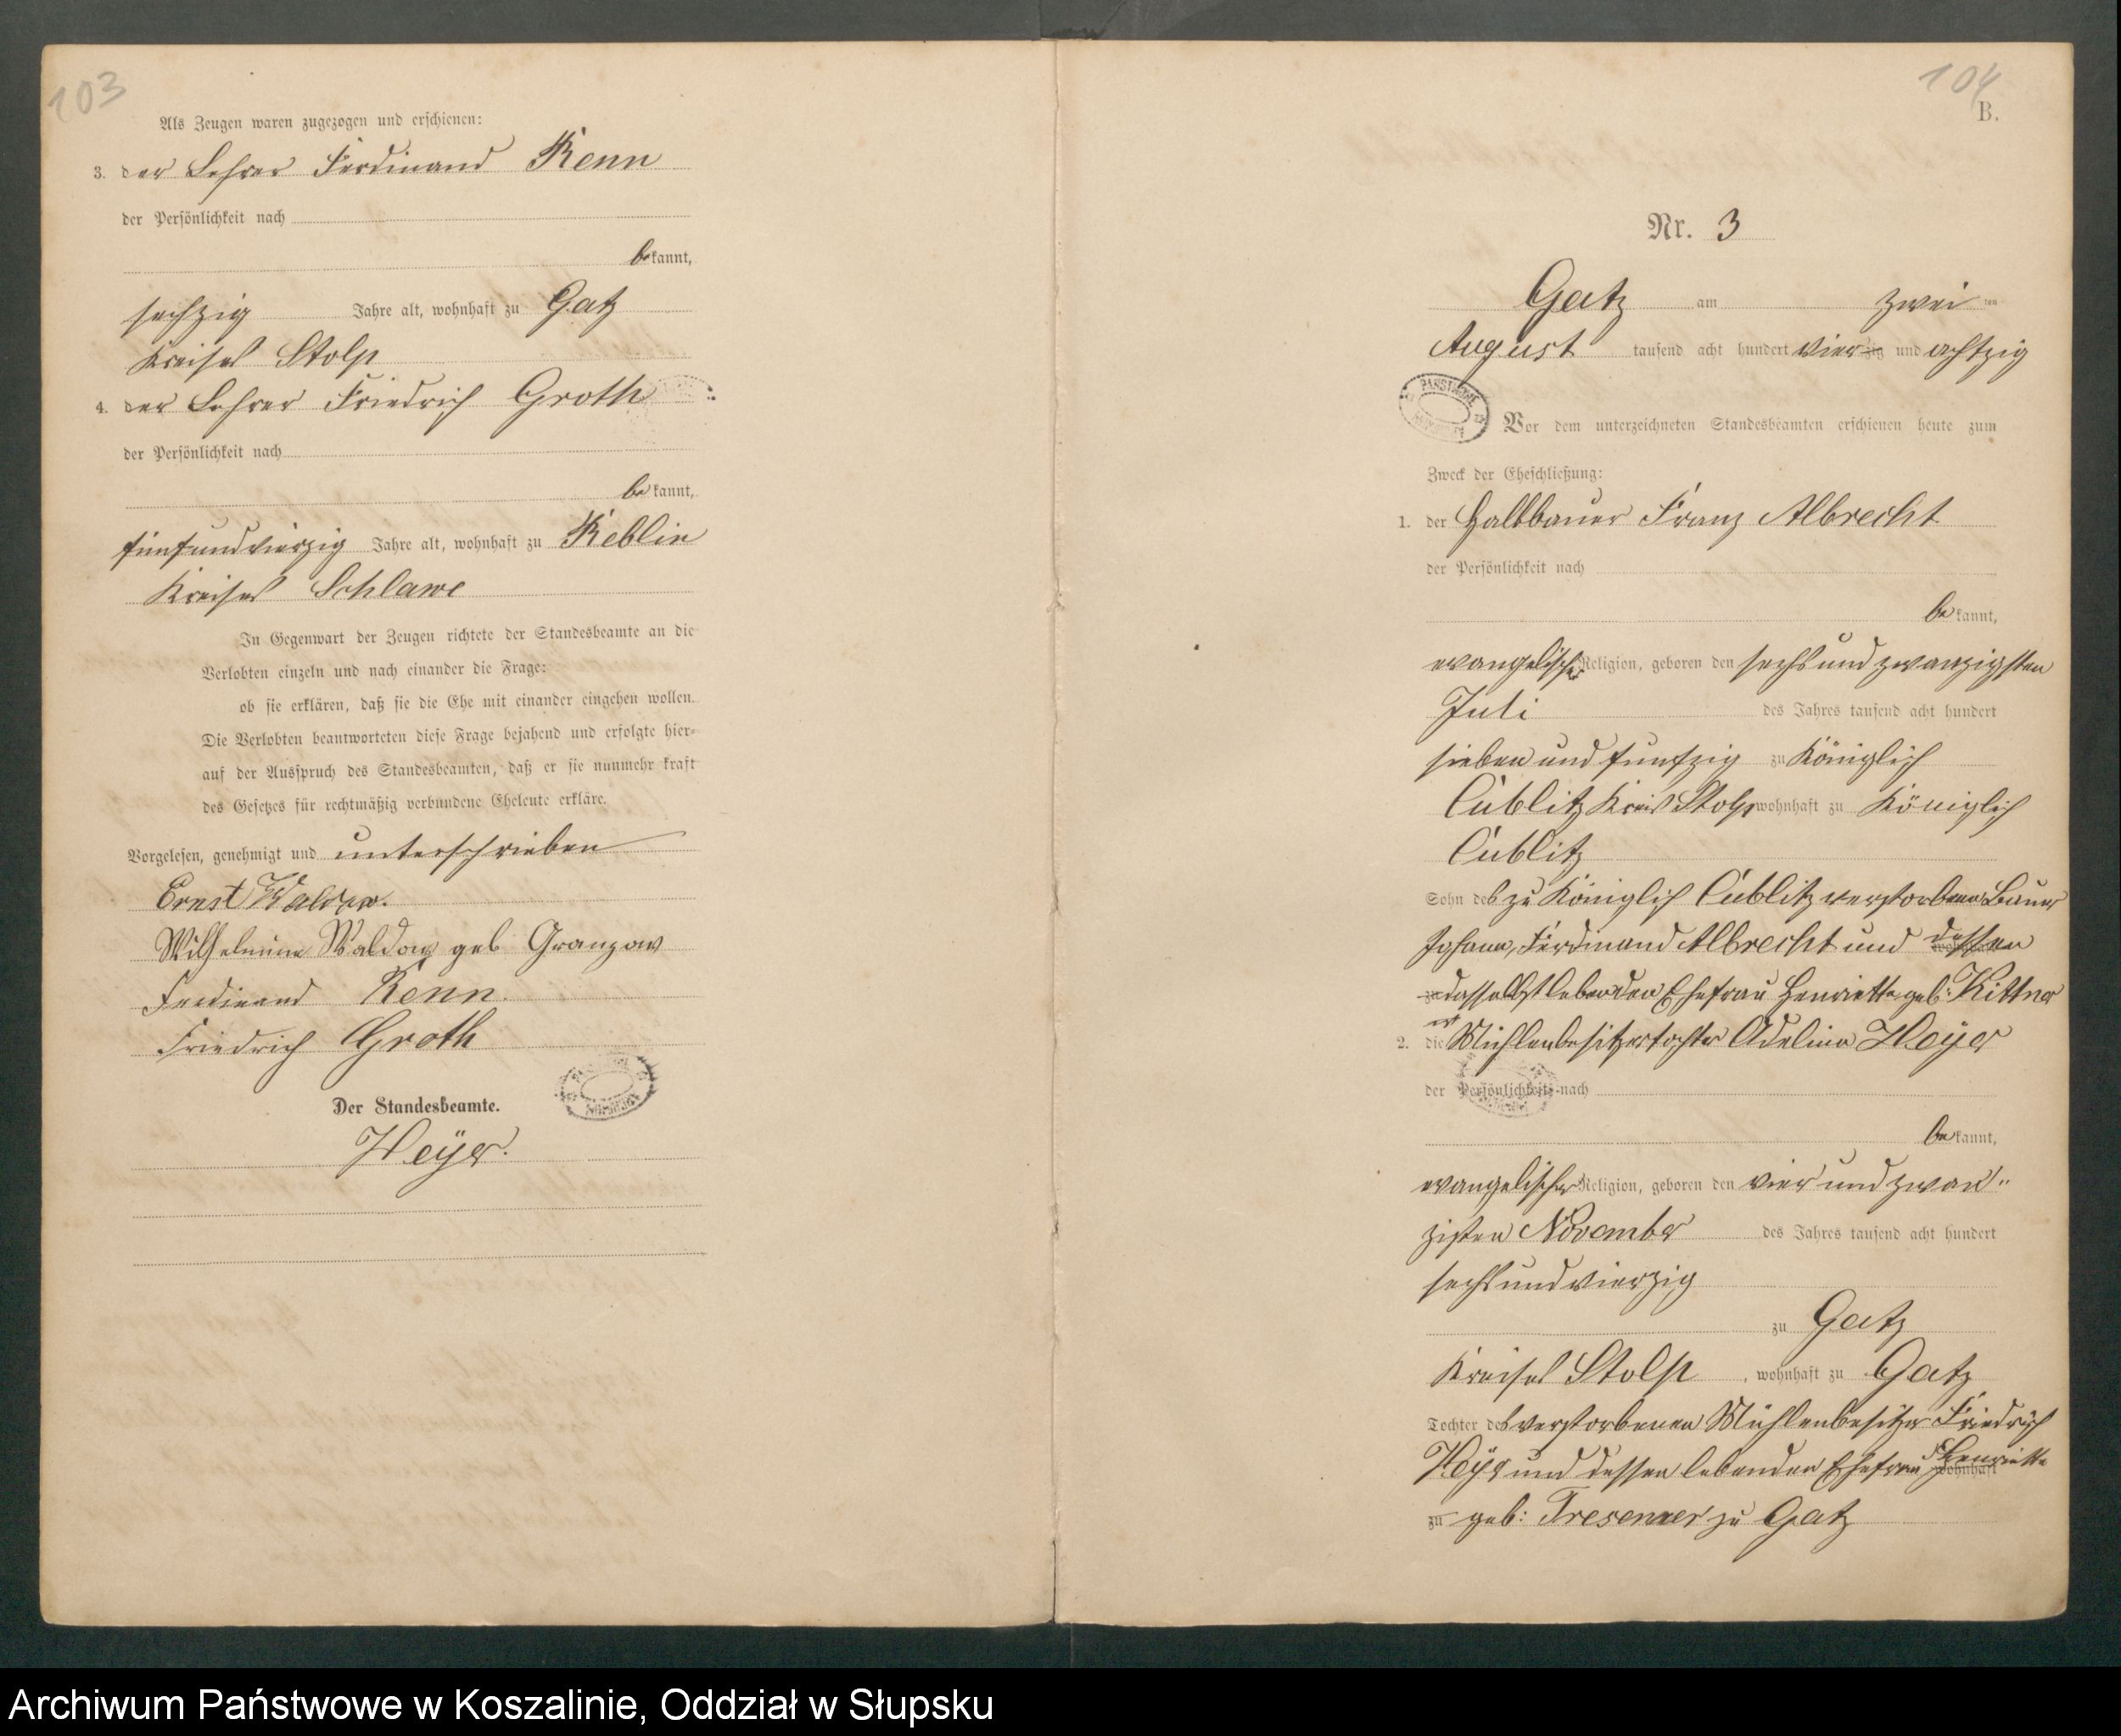 103
Als Zeugen waren zugezogen und erschienen:
3. der Lehrer Ferdinand Renn
der Persönlichkeit nach
bekannt,
sechzig Jahre alt, wohnhaft zu Gatz
Kreises Stolp
4. der Lehrer Friedrich Groth
der Persönlichkeit nach
bekannt,
fünfundvierzig Jahre alt, wohnhaft zu Reblin
Kreises Schlawe
In Gegenwart der Zeugen richtete der Standesbeamte an die
Verlobten einzeln und nach einander die Frage:
ob sie erklären, daß sie die Ehe mit einander eingehen wollen.
Die Verlobten beantworteten diese Frage bejahend und erfolgte hier-
auf der Ausspruch des Standesbeamten, daß er sie nunmehr kraft
des Gesetzes für rechtmäßig verbundene Eheleute erkläre.
Vorgelesen, genehmigt und unterschrieben
Ernst Waldow.
Wilhelmine Waldow geb Granzow
Ferdinand Renn.
Friedrich Groth
Der Standesbeamte.
Heÿer.
104
B.
Nr. 3
Gatz am zwei ten
August tausend acht hundert vierzig und achtzig
Vor dem unterzeichneten Standesbeamten erschienen heute zum
Zweck der Eheschließung:
1. der Halbbauer Franz Albrecht
der Persönlichkeit nach
bekannt,
evangelischer Religion, geboren den sechs und zwanzigsten
Juli des Jahres tausend acht hundert
sieben und fünfzig zu Königlich
Cublitz Kreis Stolp wohnhaft zu Königlich
Cublitz
Sohn des zu Königlich Cublitz verstorbenen Bauer
Johann, Ferdinand Albrecht und dessen
zu dasselbst lebenden Ehefrau Henriette geb: Kittner
2. die Mühlenbesitzertochter Adeline Heÿer
der Persönlichkeit nach
bekannt,
evangelischer Religion, geboren den vier und zwan"
zigsten November des Jahres tausend acht hundert
sechs und vierzig
zu Gatz
Kreises Stolp, wohnhaft zu Gatz
Tochter des verstorbenen Mühlenbesitzer Friedrich
Heÿer und dessen lebenden Ehefrau Henriette wohnhaft
zu geb: Tresemer zu Gatz
Archiwum Państwowe w Koszalinie, Oddział w Słupsku